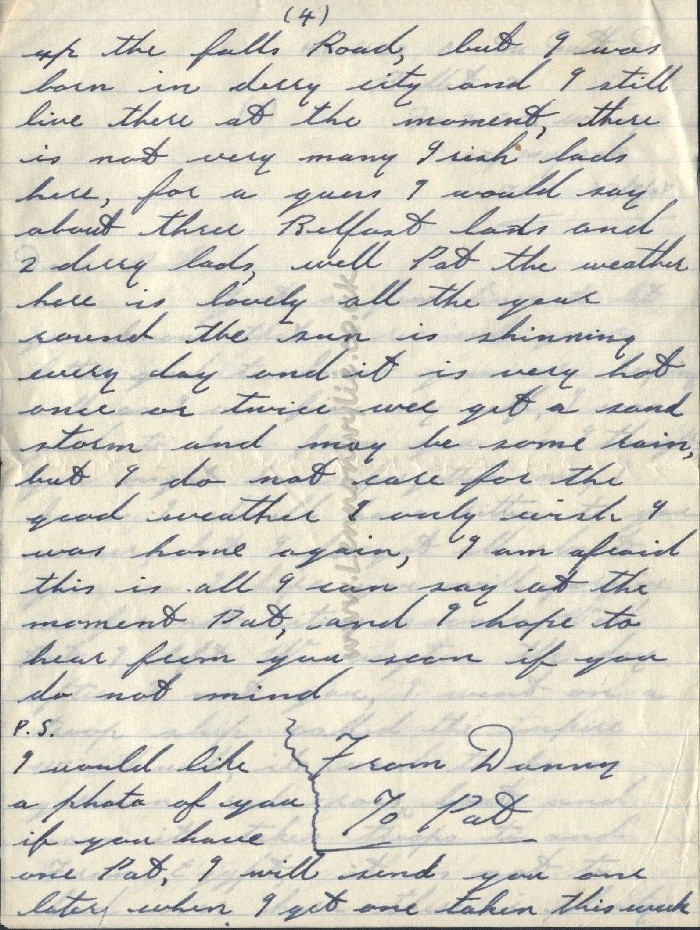 (4)
up the falls Road, but I was
born in derry city and I still
live there at the moment, there
is not very many Irish lads
here, for a guess I would say
about three Belfast lads and
2 derry lads, well Pat the weather
here is lovely all the year
round the sun is shinning
every day and it is very hot
once or twice wee get a sand
storm and may be some rain,
but I do not care for the
good weather I only wish I
was home again, I am afraid
this is all I can say at the
moment Pat, and I hope to
hear from you soon if you
do not mind
From Danny
To Pat
P.S.
I would like
a photo of you
if you have
one Pat, I will send you one
later when I get one taken this week